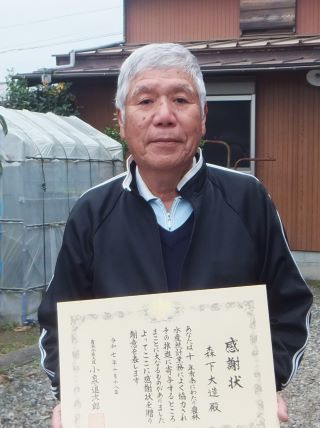 感謝状
森下大造殿
あなたは十年有余にわたり農林
水産統計業務によく協力され
その推進に寄与するところ
まことに大なるものがありました
よってここに感謝状を贈り
謝意を表します
令和七年十月十八日
農林水産大臣 小泉進次郎